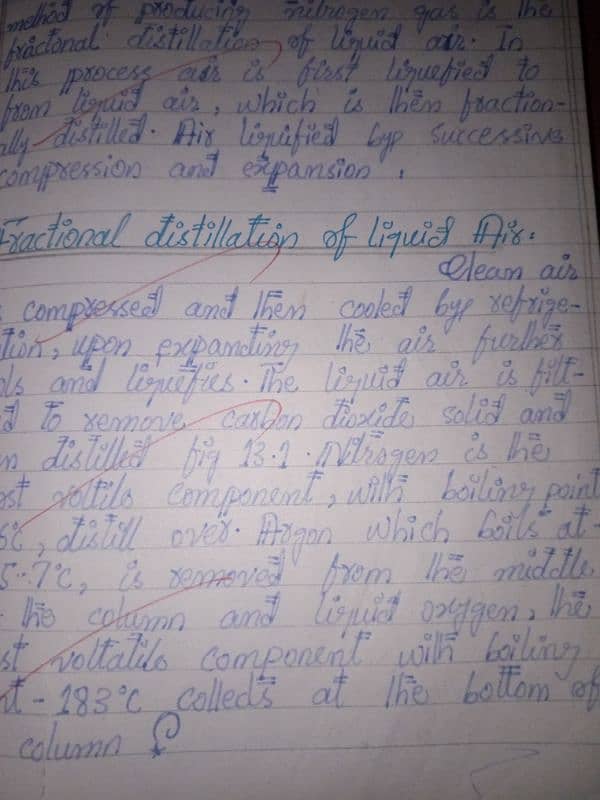 method of producing nitrogen gas is the
fractional distillation of liquid air. In
this process air is first liquefied to
from liquid air, which is then fraction-
ally distilled. Air liquified bye successive
compression and expansion.
Fractional distillation of liquid Air:
Clean air
s compressed and then cooled bye refrige-
tion, upon expanding the air further
ols and liquefies. The liquid air is filt-
d to remove carbon dioxide solid and
n distilled fig 13.1. Nitrogen is the
st voltile component, with boiling point
6°C, distill over. Argon which boils at-
5.7°C, is removed from the middle
the column and liquid oxygen, the
st voltatile component with boiling
nt -183°C collects at the bottom of
column